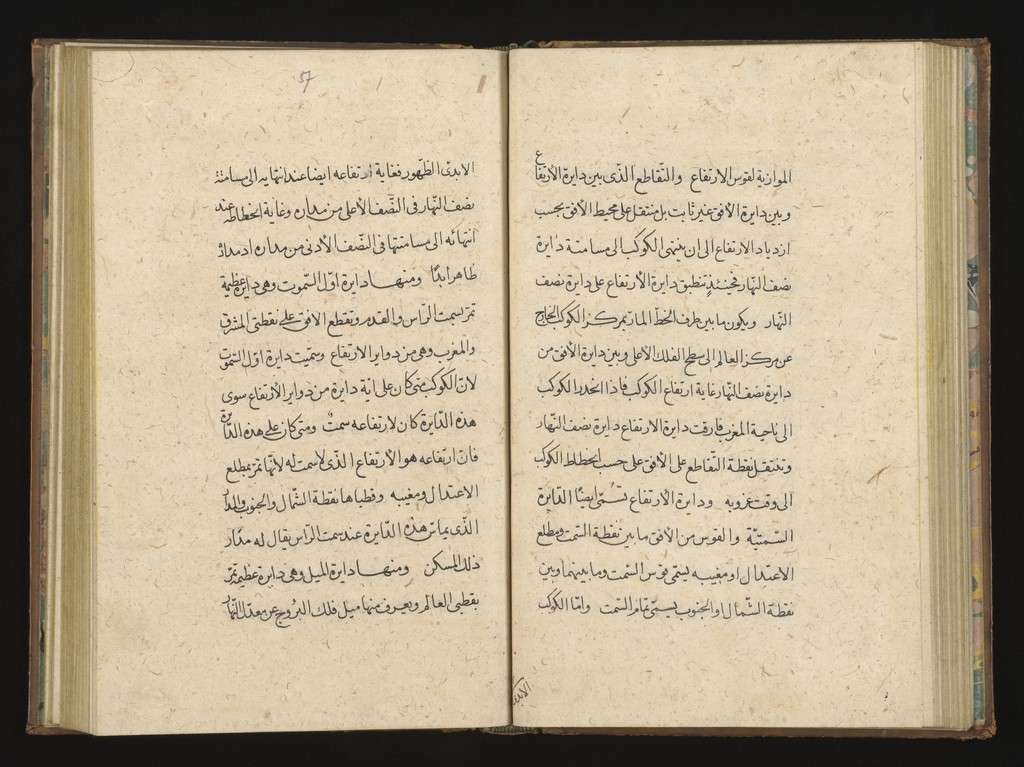 الموازية لقوس الارتفاع والتقاطع الذى بين دايرة الارتفاع
وبين دايرة الأفق غير ثابت بل منتقل على محيط الافق بحسب
ازدياد الارتفاع الى ان ينتهى الكوكب الى مسامتة دايرة
نصف النهار فحينئذٍ تنطبق دايرة الأرتفاع على دايرة نصف
النهار ويكون ما بين طرف الخط المار بمركز الكوكب الخارج
عن مركز العالم الى سطح الفلك الأعلى وبين دايرة الأفق من
دايرة نصف النهار غاية ارتفاع الكوكب فاذا انحدر الكوكب
الى ناحية المغرب فارقت دايرة الارتفاع دايرة نصف النهار
وتنتقل نقطة التقاطع على الأفق على حسب انحطاط الكوكب
الى وقت غروبه ودايرة الأرتفاع تسمى ايضًا الدايرة
السمتية والقوس من الأفق ما بين نقطة السمت ومطلع
الاعتدال او مغيبه يسمى قوس السمت وما بينهما وبين
نقطة الشمال او الجنوب يسمى تمام السمت واما الكوكب
الابدى
57
الابدىّ الظهور فغاية ارتفاعه ايضا عند انتهايه الى مسامتة
نصف النهار فى النصف الأعلى من مداره وغاية انحطاطه عند
انتهائه الى مسامتتها فى النصف الأدنى من مداره اذ مداره
ظاهر ابدًا ومنها دايرة اوّل السموت وهى دايرة عظيمة
تمر بسمت الرأس والقدم وتقطع الافق على نقطتى المشرق
والمغرب وهى من دواير الارتفاع وسميت دايرة اوّل السموت
لان الكوكب متى كان على اية دايرة من دواير الأرتفاع سوى
هذه الدايرة كان لارتفاعه سمتٌ ومتى كان على هذه الدايرة
فان ارتفاعه هو الأرتفاع الذى لا سمت له لأنها تمر بمطلع
الاعتدال ومغيبه وقطباها نقطة الشمال والجنوب والمدار
الذى يماس هذه الدايرة عند سمت الرأس يقال له مدار
ذلك المسكن ومنها دايرة الميل وهى دايرة عظيمة تمر
بقطبى العالم ويعرف منها ميل فلك البروج عن معدل النهار